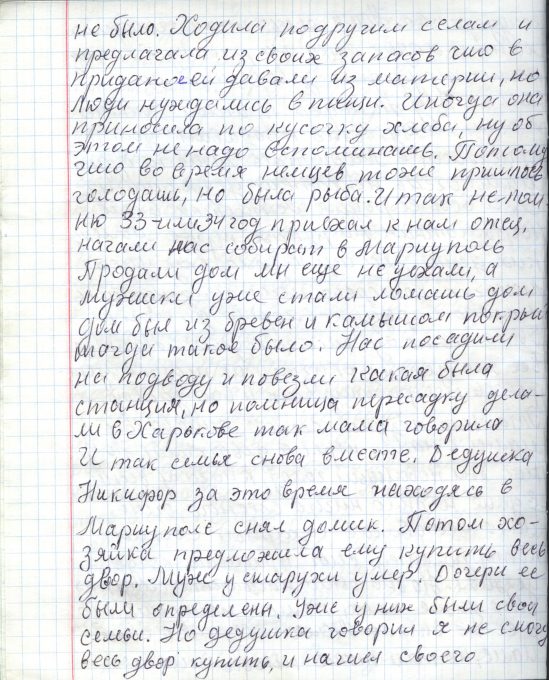 не было. Ходила подругим селам и
предлагала из своих запасов что в
приданоей давали из материи, но
люди нуждались в пищи. Иногда она
приносила по кусочку хлеба, ну об
этом не надо вспоминать. Потому
что во время немцев тоже пришлось
голодать, но была рыба. И так не пом-
ню 33-или 34 год приехал к нам отец,
начали нас собират в Мариуполь
Продали дом мы еще не уехали, а
мужики уже стали ломать дом
дом был из бревен и камышом покрыт
тагда такое было. Нас посадили
на подводу и повезли какая была
станция, но помница пересадку дела-
ли в Харькове так мама говорила
И так семья снова вместе. Дедушка
Никифор за это время находясь в
Мариуполе снял домик. Потом хо-
зяйка предложила ему купить весь
двор. Муж у старухи умер. Дочери ее
были определены. Уже у них были свои
семьи. Но дедушка говорил я не смогу
весь двор купить, и нашел своего